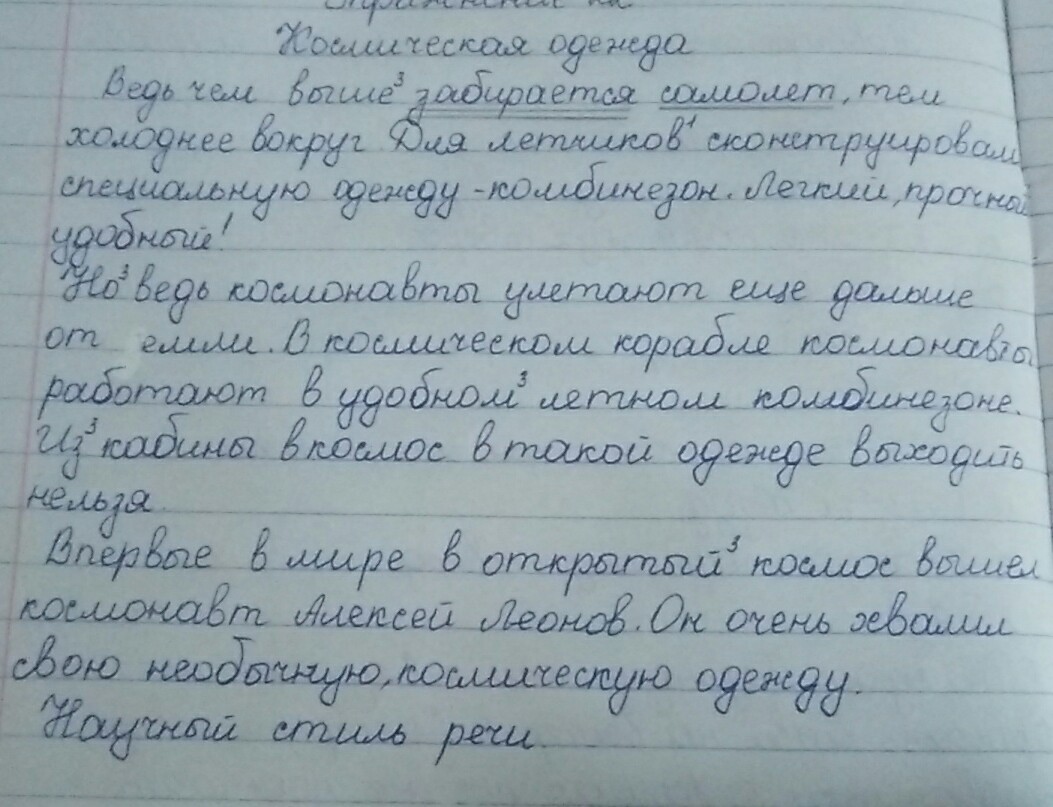 Космическая одежда
Ведь чем выше³ забирается самолет, тем
холоднее вокруг Для летчиков¹ сконструировали
специальную одежду - комбинезон. Легкий, прочный
удобный!
Но³ ведь космонавты улетают еще дальше
от емли. В космическом корабле космонавты
работают в удобном³ летном комбинезоне.
Из³ кабины в космос в такой одежде выходить
нельзя.
Впервые в мире в открытый³ космос вышел
космонавт Алексей Леонов. Он очень хвалил
свою необычную, космическую одежду.
Научный стиль речи.